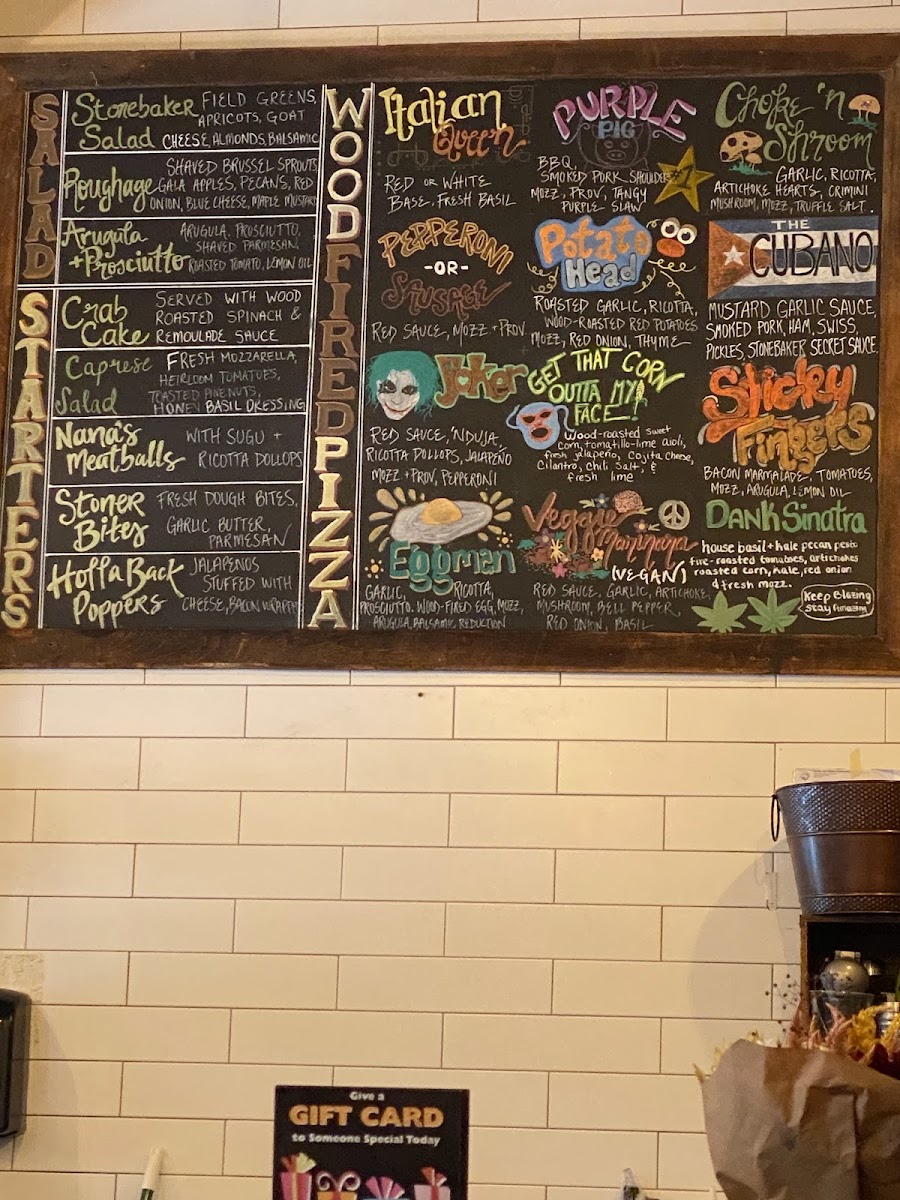 SALAD
Stonebaker Salad
FIELD GREENS,
APRICOTS, GOAT
CHEESE, ALMONDS, BALSAMIC
Roughage
SHAVED BRUSSEL SPROUTS
GALA APPLES, PECANS, RED
ONION, BLUE CHEESE, MAPLE MUSTARD
Arugula
+Prosciutto
ARUGULA, PROSCIUTTO,
SHAVED PARMESAN
ROASTED TOMATO, LEMON OIL
STARTERS
Crab
Cake
SERVED WITH WOOD
ROASTED SPINACH &
REMOULADE SAUCE
Caprese
Salad
FRESH MOZZARELLA,
HEIRLOOM TOMATOES,
TOASTED PINENUTS,
HONEY BASIL DRESSING
Nana's
Meatballs
WITH SUGU +
RICOTTA DOLLOPS
Stoner
Bites
FRESH DOUGH BITES,
GARLIC BUTTER,
PARMESAN
Holla Back
Poppers
JALAPENOS
STUFFED WITH
CHEESE, BACON WRAPPED
WOOD FIRED PIZZA
Italian
Queen
RED OR WHITE
BASE, FRESH BASIL
PEPPERONI
-OR-
SAUSAGE
RED SAUCE, MOZZ + PROV
Joker
RED SAUCE, 'NDUJA,
RICOTTA DOLLOPS, JALAPEÑO
MOZZ + PROV, PEPPERONI
Eggman
GARLIC, RICOTTA,
PROSCIUTTO, WOOD-FIRED EGG, MOZZ,
ARUGULA, BALSAMIC REDUCTION
PURPLE
PIG
BBQ,
SMOKED PORK SHOULDER
MOZZ, PROV, TANGY
PURPLE SLAW
#1
Potato
Head
ROASTED GARLIC, RICOTTA,
WOOD-ROASTED RED POTATOES
MOZZ, RED ONION, THYME
GET THAT CORN
OUTTA MY
FACE!
Wood-roasted sweet
corn, tomatillo-lime aioli,
fresh jalapeño, Cojita cheese,
Cilantro, chili salt, &
fresh lime
Veggie
Marinara
(VEGAN)
RED SAUCE, GARLIC, ARTICHOKE,
MUSHROOM, BELL PEPPER,
RED ONION, BASIL
Choke 'n
Shroom
GARLIC, RICOTTA,
ARTICHOKE HEARTS, CRIMINI
MUSHROOM, MOZZ, TRUFFLE SALT.
THE
CUBANO
MUSTARD GARLIC SAUCE,
SMOKED PORK, HAM, SWISS,
PICKLES, STONEBAKER SECRET SAUCE.
Sticky
Fingers
BACON MARMALADE, TOMATOES,
MOZZ, ARUGULA, LEMON OIL
DANK Sinatra
house basil + kale pecan pesto
fire-roasted tomatoes, artichokes
roasted corn, kale, red onion
& fresh mozz.
Keep Blazing
Stay Amazing
Give a
GIFT CARD
to Someone Special Today